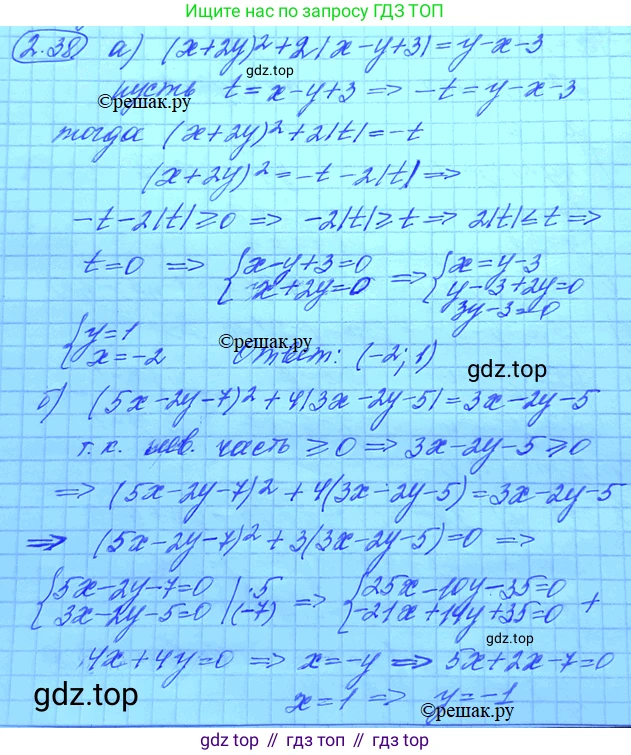 Ищите нас по запросу ГДЗ ТОП
2.38 а) (x+2y)²+2|x-y+3|=y-x-3
gdz.top
©reшак.ру
пусть t=x-y+3 => -t=y-x-3
тогда (x+2y)²+2|t|=-t
(x+2y)²=-t-2|t| =>
-t-2|t|≥0 => -2|t|≥t => 2|t|≤t =>
t=0 => {x-y+3=0 => {x=y-3
x+2y=0 y-3+2y=0
3y-3=0
{y=1
x=-2
©reшак.ру
Ответ: (-2; 1)
gdz.top
б) (5x-2y-7)²+4|3x-2y-5|=3x-2y-5
т.к. лев. часть ≥0 => 3x-2y-5≥0
=> (5x-2y-7)²+4(3x-2y-5)=3x-2y-5
=> (5x-2y-7)²+3(3x-2y-5)=0 =>
{5x-2y-7=0 |·5 => {25x-10y-35=0 +
3x-2y-5=0 |(-7) -21x+14y+35=0
gdz.top
4x+4y=0 => x=-y => 5x+2x-7=0
gdz.top
x=1 => y=-1
©reшак.ру
gdz.top // гдз.топ // гдз.top